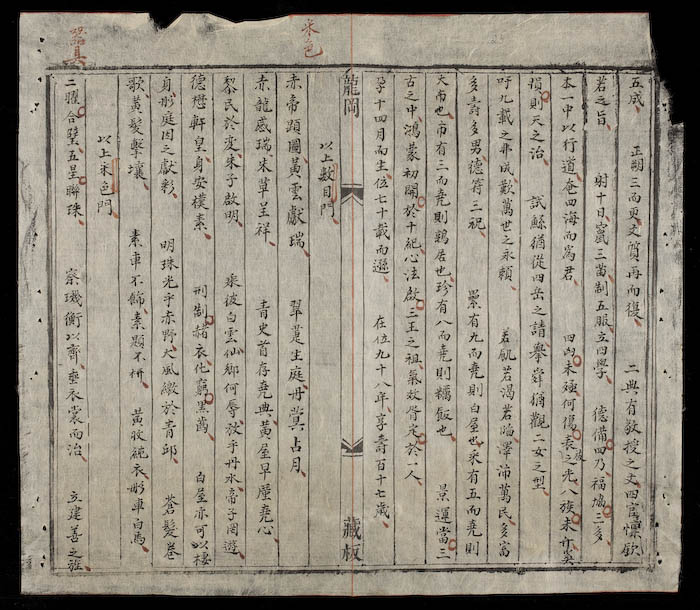 采色
器具
五成 正朔三而更文質再而復 二典有敎授之文四宦懍欽
若之旨 射十日竄三苗制五服立四學 德備四乃福 三多
本一中以行道奄四海而爲君 四凶未殛何傷表之光八族未升奚
損則天之治 試鯀猶從四岳之請舉舜猶觀二女之型
吁九載之弗成歎萬世之永賴 若飢若渴若臨澤沛萬民多富
多壽多男德符三祝 有九而堯則白屋也采有五而堯則
大布也市有三而堯則鶉居也珍有八而堯則糲飯也 景運當三
古之中鴻蒙初開於十紀心法啟三王之祖氣數胥定於一人
孕十四月而生位七十載而遜 在位九十八年享壽百十七歲
以上數目門
龍岡 藏板
赤帝顯圖黃雲獻瑞 翠萐生庭丹蓂占月
赤龍感瑞朱草呈祥 青史首存堯典黃屋早厪堯心
黎民於變朱子啟明 乘彼白雲仙鄉何辱放乎丹水帝子罔遊
德懋軒皇身安樸素 刑制赭衣化窮黑齒 白屋亦可以棲
身彤庭因之獻彩 明珠光乎赤野大風繳於青邱 蒼髮卷
歌黃髮擊壤 素車不飾素題不枅 黃收純衣彤車白馬
以上采色門
二曜合璧五星聯珠 察璣衡以齊垂衣裳而治 立建善之旌